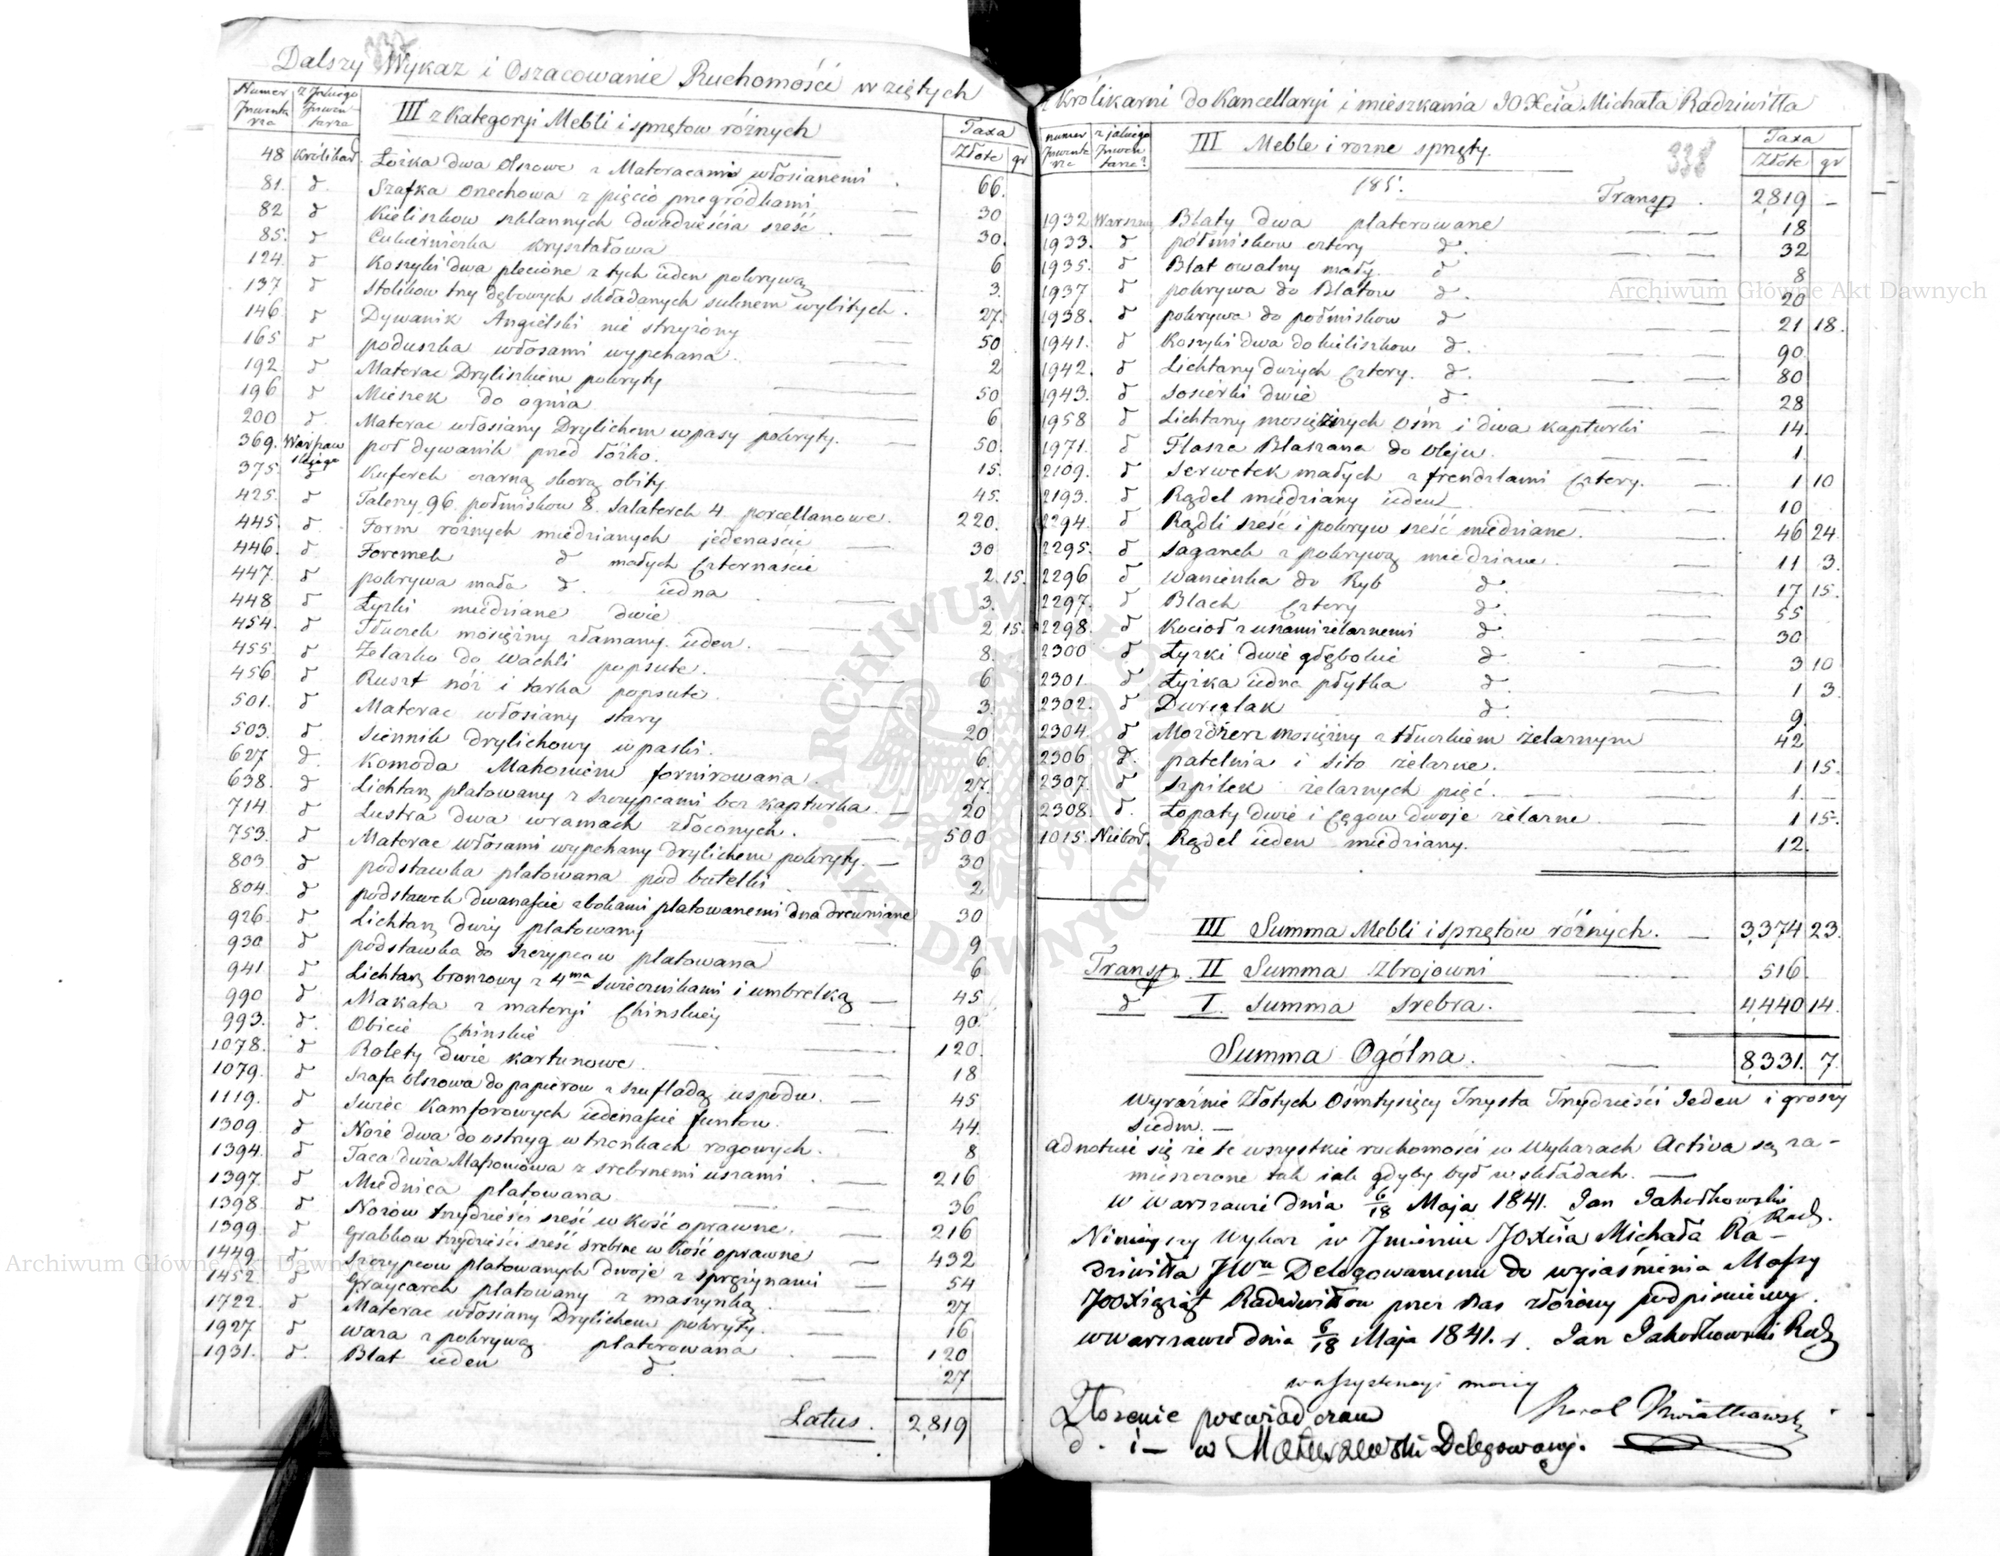 337
Dalszy Wykaz i Oszacowanie Ruchomości wziętych
Numer Inwentarza z jakiego Inwentarza III z Kategoryi Mebli i sprzętow różnych Taxa Złote gr
48 Królikar. Łóżka dwa Olszowe z Materacami włosianemi 66.
81. d. Szafka Orzechowa z pięcio przegródkami 30
82 d Kieliszkow szklannych dwadzieścia sześć 30.
85. d Cukierniczka kryształowa 6
124. d Koszyki dwa plecione z tych ieden pokrywą 3.
137 d Stolikow trzy dębowych składanych suknem wybitych. 27.
146. d Dywanik Angielski nie strzyżony 50
165 d poduszka włosami wypchana. 2
192. d Materac Dryliszkiem pokryty 50
196 d Mieszek do ognia 6
200 d. Materac włosiany Drylichem w pasy pokryty. 50.
369. Warszawskiego poł dywanik przed łóżko. 15.
375. d Kuferek czarną skorą obity 45.
425. d Talerzy 96. połmiskow 8. Salaterek 4. porcellanowe. 220.
445. d. Form różnych miedzianych jedenaście 30
446. d. Foremek d małych Czternaście 2. 15.
447. d pokrywa mała d. iedna 3.
448 d Łyżki miedziane dwie 2. 15.
454. d Tłuczek mosiężny złamany ieden. 8.
455. d Żelazko do wachli popsute. 6
456 d Ruszt nóż i tarka popsute. 3.
501. d Materac włosiany stary 20
503. d. Siennik drylichowy w paski. 6.
627 d. Komoda Mahoniem fornirowana. 27.
638. d Lichtarz platowany z szczypcami bez kapturka. 20
714. d Lustra dwa w ramach złoconych. 500
753. d Materac włosami wypchany drylichem pokryty. 30
803 d podstawka platowana pod butelki 2
804. d podstawek dwanaście z bokami platowanemi dna drewniane 30
926. d Lichtarz duży platowany 9
930 d podstawka do szczypcow platowana 6
941. d Lichtarz bronzowy z 4ma świecznikami i umbrelką 45
990 d Makata z materyi Chińskiey 90.
993. d. Obicie Chińskie 120.
1078. d Rolety dwie kartunowe 18
1079. d Szafa olszowa do papierow z szufladą u spodu. 45
1119. d Swiec Kamforowych iedenaście funtow. 44.
1309. d Noże dwa do ostryg w trzonkach rogowych. 8
1394. d Taca duża Mahoniowa z srebrnemi uszami 216
1397. d Miednica platowana 36
1398. d Nożow trzydzieści sześć w kość oprawne. 216
1399. d Grabkow trzydzieści sześć srebrne w kość oprawne 432
1449. d Szczypcow platowanych dwoje z sprężynami 54
1452. d Graycarek platowany z maszynką 27
1722. d Materac włosiany Drylichem pokryty. 16
1927. d waza z pokrywą platerowana 120
1931. d. Blat ieden d. 27
Latus. 2,819
z Królikarni do Kancellaryi i mieszkania JO Xcia Michała Radziwiłła
338
numer Inwentarza z jakiego Inwentarza? III Meble i rożne sprzęty. Taxa Złote gr
185. Transp. 2819 —
1932 Warszaw Blaty dwa platerowane 18
1933. d połmiskow cztery d. 32
1935. d Blat owalny mały d 8
1937 d pokrywa do Blatow d. 20
1938. d pokrywa do połmiskow d 21 18.
1941. d Koszyki dwa do kieliszkow d. 90.
1942. d Lichtarzy dużych Cztery. d. 80
1943. d Sosierki dwie d. 28
1958 d Lichtarzy mosiężnych ośm i dwa kapturki 14.
1971. d Flasza Blaszana do oleju. 1.
2109. d Serwetek małych z frendzlami Cztery. 1 10
2193. d Rądel miedziany ieden 10
2294. d Rądli sześć i pokryw sześć miedziane. 46 24.
2295. d Saganek z pokrywą miedziane. 11 3.
2296 d Wanienka do Ryb d. 17 15.
2297. d Blach Cztery d. 55
2298. d Kocioł z uszami żelaznemi d. 30
2300 d Łyżki dwie głębokie d 3 10
2301. d Łyżka iedna płytka d. 1 3.
2302. d Durszlak d. 9.
2304 d Mozdżerz mosiężny z tłuczkiem żelaznym 42
2306 d. patelnia i sito żelazne. 1 15.
2307. d Szpilek żelaznych pięć. 1. —
2308. d. Łopaty dwie i Cęgow dwoje żelazne. 1 15.
1015. Niebor. Rądel ieden miedziany. 12.
III Summa Mebli i sprzętow różnych. 3,374 23.
Transp. II Summa Zbrojowni 516
d I. Summa Srebra. 4,440 14.
Summa Ogólna. 8,331. 7.
Wyraźnie Złotych Ośmtysięcy Trzysta Trzydzieści Jeden i groszy
siedm. —
adnotuie się że te wszystkie ruchomości w Wykazach Activa są za-
mieszczone tak iak gdyby był w składach. —
w Warszawie dnia 6/18 Maja 1841. Jan Jakołkowski
Radz.
Niniejszy Wykaz w Imieniu JO Xcia Michała Ra-
dziwiłła JWu Delegowanemu do wyjaśnienia Massy
JOO Xiążąt Radziwiłłow przez Nas złożony podpisuiemy.
w Warszawie dnia 6/18 Maja 1841. r. Jan Jakołkowski Radz
Karol Kwiatkowski
Złożenie poswiadczam
Delegowany.
Archiwum Główne Akt Dawnych
Archiwum Główne Akt Dawnych
ARCHIWUM GŁÓWNE AKT DAWNYCH